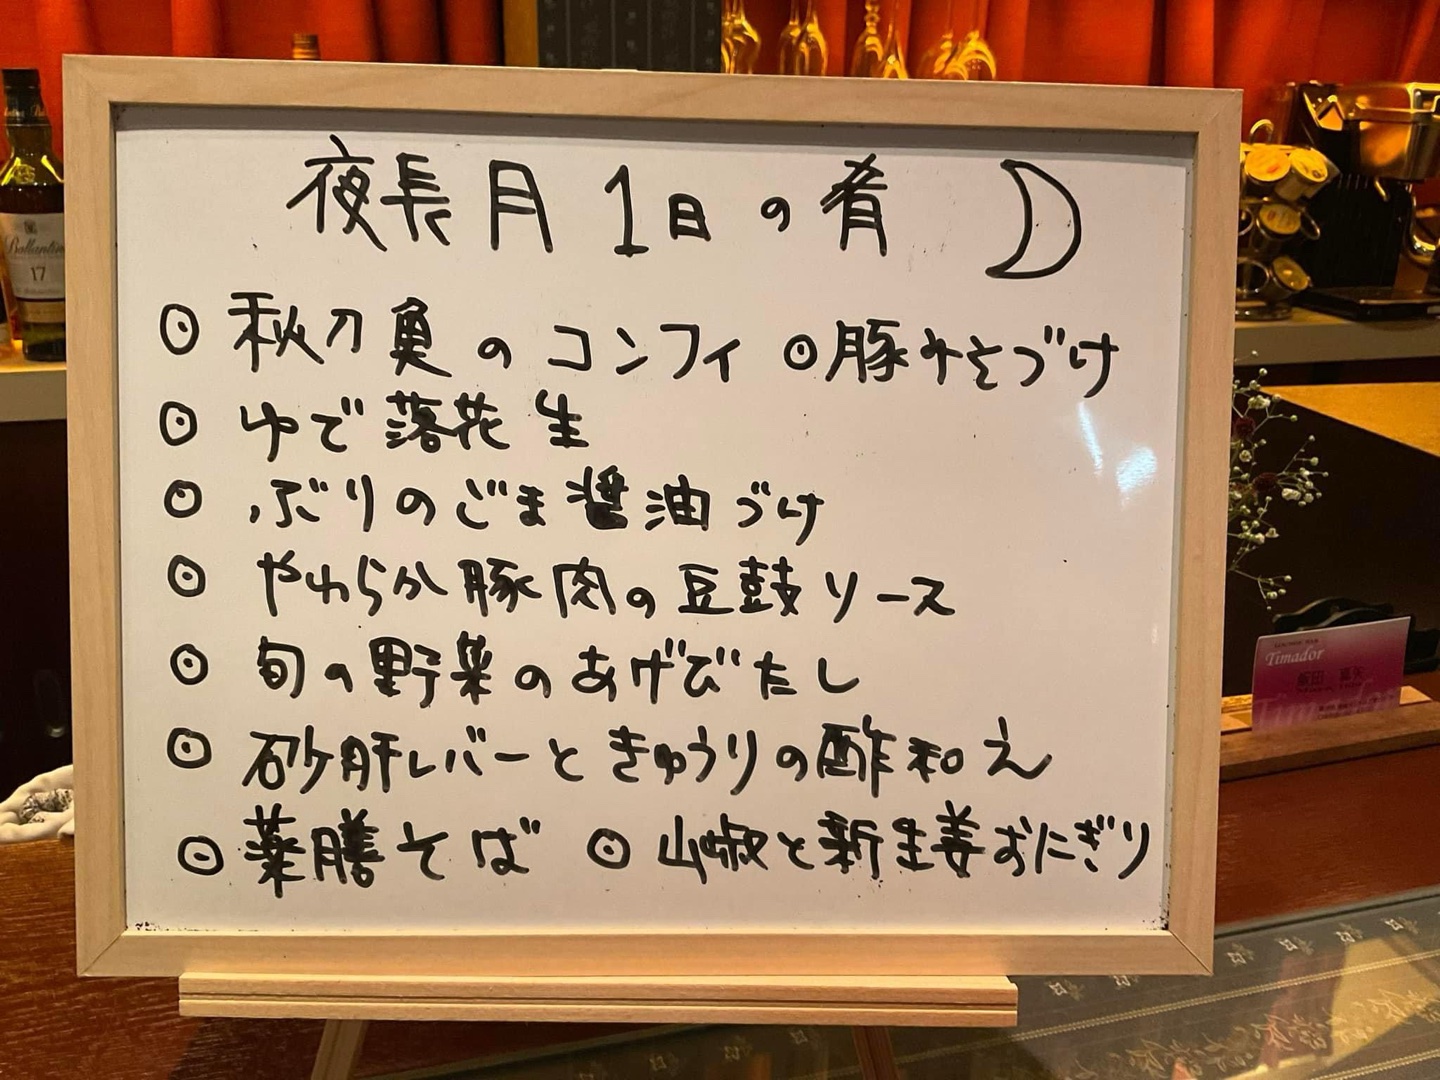 夜長月1日の肴
◎秋刀魚のコンフィ ◎豚みそづけ
◎ゆで落花生
◎ぶりのごま醤油づけ
◎やわらか豚肉の豆鼓ソース
◎旬の野菜のあげびたし
◎砂肝レバーときゅうりの酢和え
◎薬膳そば ◎山椒と新生姜おにぎり
Ballantine
17
Timador